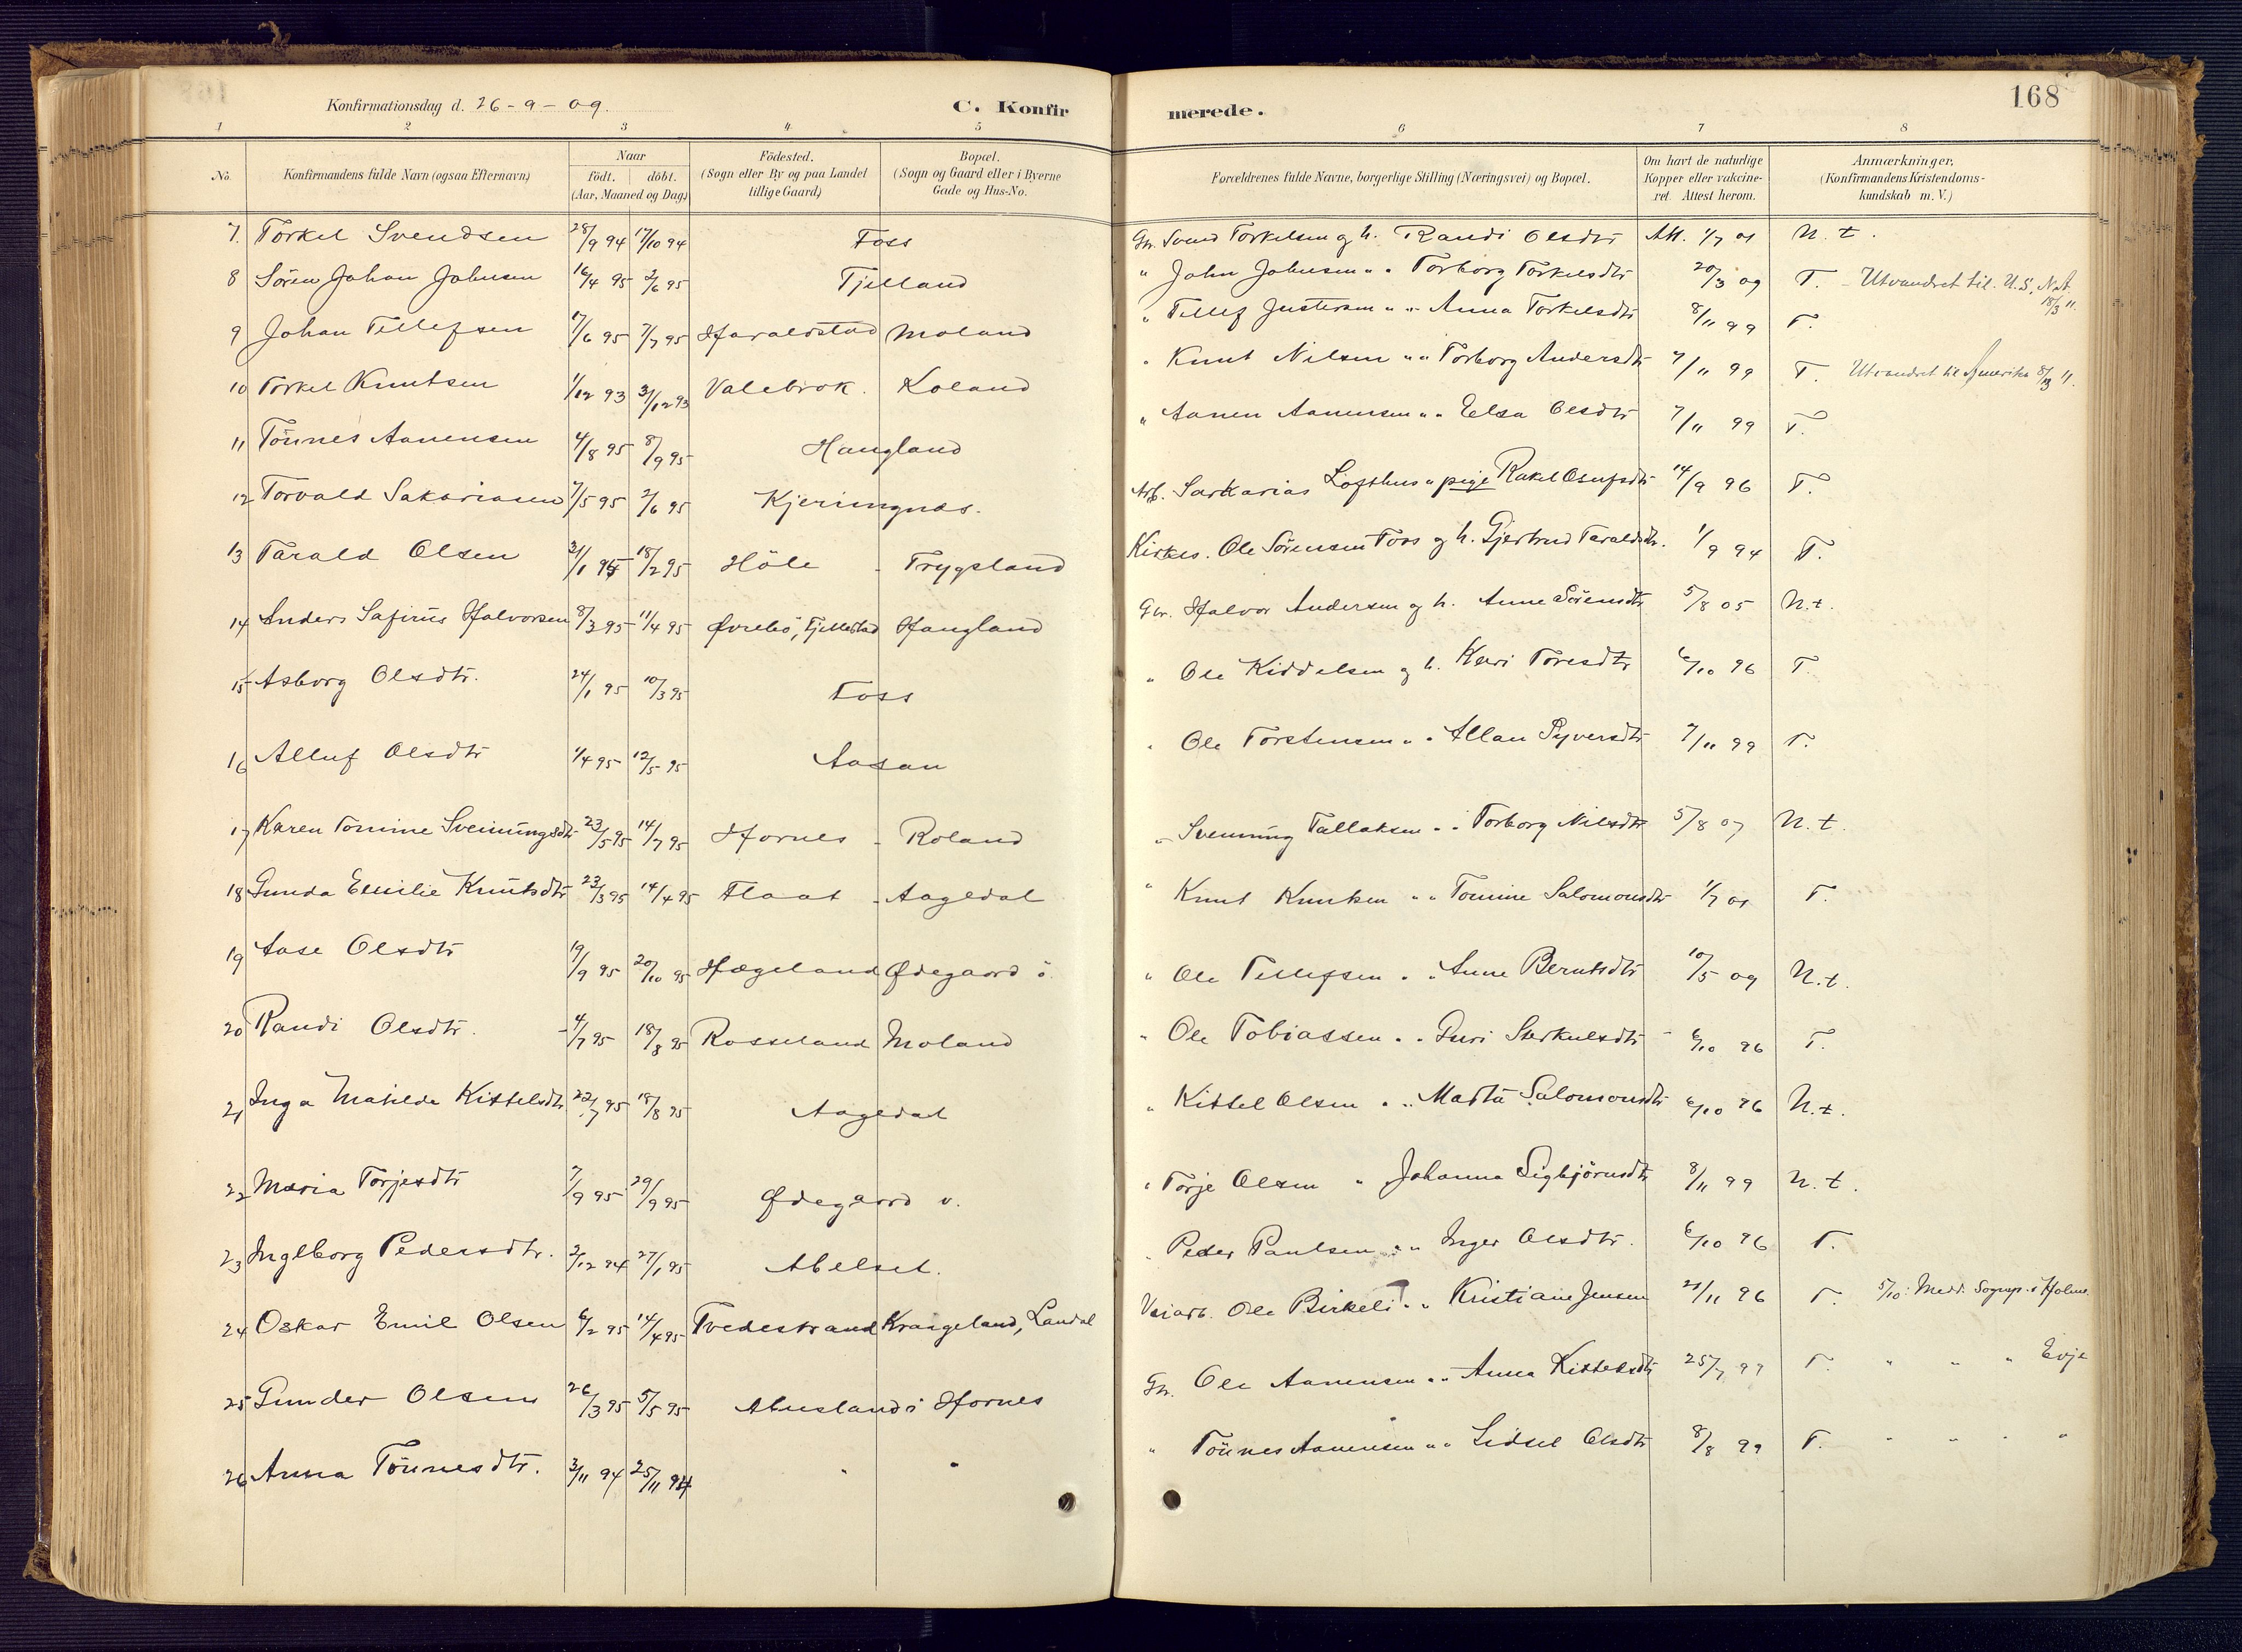 Konfirmationsdag d. 26-9-09. C. Konfirmerede. 168
1 2 3 4 5 6 7 8
No. Konfirmandens fulde Navn (ogsaa Efternavn) Naar født. døbt. (Aar, Maaned og Dag) Födested. (Sogn eller By og paa Landet tillige Gaard) Bopæl. (Sogn og Gaard eller i Byerne Gade og Hus-No. Forældrenes fulde Navne, borgerlige Stilling (Næringsvei) og Bopæl. Om havt de naturlige Kopper eller vakcineret. Attest herom. Anmærkninger, (Konfirmandens Kristendomskundskab m. V.)
7. Torkel Svendsen 28/9 94 17/10 94 Foss Gbr. Svend Torkelsen og h. Randi Olsdtr Att. 1/7 01 N. t.
8 Sören Johan Johnsen 16/4 95 2/6 95 Tjelland " John Johnsen " " Torborg Torkelsdtr 20/3 09 T. Utvandret til U.S.N.A. 18/3 11.
9 Johan Tellefsen 17/6 95 7/7 95 Haraldstad Moland " Tellef Justersen " " Anna Torkelsdtr 8/11 99 T.
10 Torkel Knutsen 1/12 93 31/12 93 Valebrok. Koland " Knut Nilsen " " Torborg Andersdtr 7/11 99 T. Utvandret til Amerika 11.
11 Tönnes Aanensen 4/8 95 8/9 95 Haugland " Aanen Aanensen " " Elsa Olsdtr 7/11 99 T.
12 Torvald Sakariasen 7/5 95 2/6 95 Kjeringnes. Arb. Sarkarias Lofthus " pige Rakel Osufsdtr 14/9 96 T.
13 Tarald Olsen 31/1 95 18/2 95 Höle - Trygsland Kirkes. Ole Sörensen Foss og h. Gjertrud Taraldsdtr. 1/9 94 T.
14 Anders Safirus Halvorsen 8/3 95 11/4 95 Øvrebö, Fjellestad Haugland Gbr. Halvor Andersen og h. Anne Sörensdtr 5/8 05 N.t.
15 Asborg Olsdtr. 24/1 95 10/3 95 Foss " Ole Kiddelsen og h. Kari Toresdtr 6/10 96 T.
16 Alluf Olsdtr 1/4 95 12/5 95 Aasan " Ole Torstensen " " Allau Syversdtr 7/11 99 T.
17 Karen Tomine Sveinungsdtr 23/5 95 14/7 95 Hornes - Roland " Svenning Tallaksen " " Torborg Nilsdtr 5/8 07 N.t.
18 Gunda Emilie Knutsdtr 23/3 95 14/4 95 Flaat - Aagedal " Knut Knutsen " " Tomine Salomonsdtr 1/7 01 T.
19 Aase Olsdtr 19/9 95 20/10 95 Hægeland Ødegaard ö. " Ole Tellefsen " " Anne Berntsdtr 10/5 09 N.t.
20 Randi Olsdtr. 4/7 95 18/8 95 Rosseland Moland " Ole Tobiassen " " Guri Sterkulsdtr 6/10 96 T.
21 Inga Matilde Kittelsdtr 22/7 95 18/8 95 Aagedal " Kittel Olsen " " Marta Salomonsdtr 6/10 96 N.t.
22 Maria Torjesdtr 7/9 95 29/9 95 Ødegaard v. " Torje Olsen " Johanna Sigbjörnsdtr 8/11 99 N.t.
23 Ingeborg Pedersdtr. 2/12 94 27/1 95 Abelset. " Peder Paulsen " " Inger Olsdtr. 6/10 96 T.
24 Oskar Emil Olsen 6/2 95 14/4 95 Tvedestrand Kraageland, Laudal Veiarb. Ole Birkeli " " Kristiane Jensen 21/11 96 T. 5/10: Medd. Sognep. i Holme.
25 Gunder Olsen 26/3 95 5/5 95 Abusland i Hornes Gbr. Ole Aanensen " " Anna Kittelsdtr 25/7 99 T. " " " Evje
26 Anna Tönnesdtr. 3/11 94 25/11 94 " " " Tönnes Aanensen " " Sidsel Olsdtr 8/8 99 T. " " " "